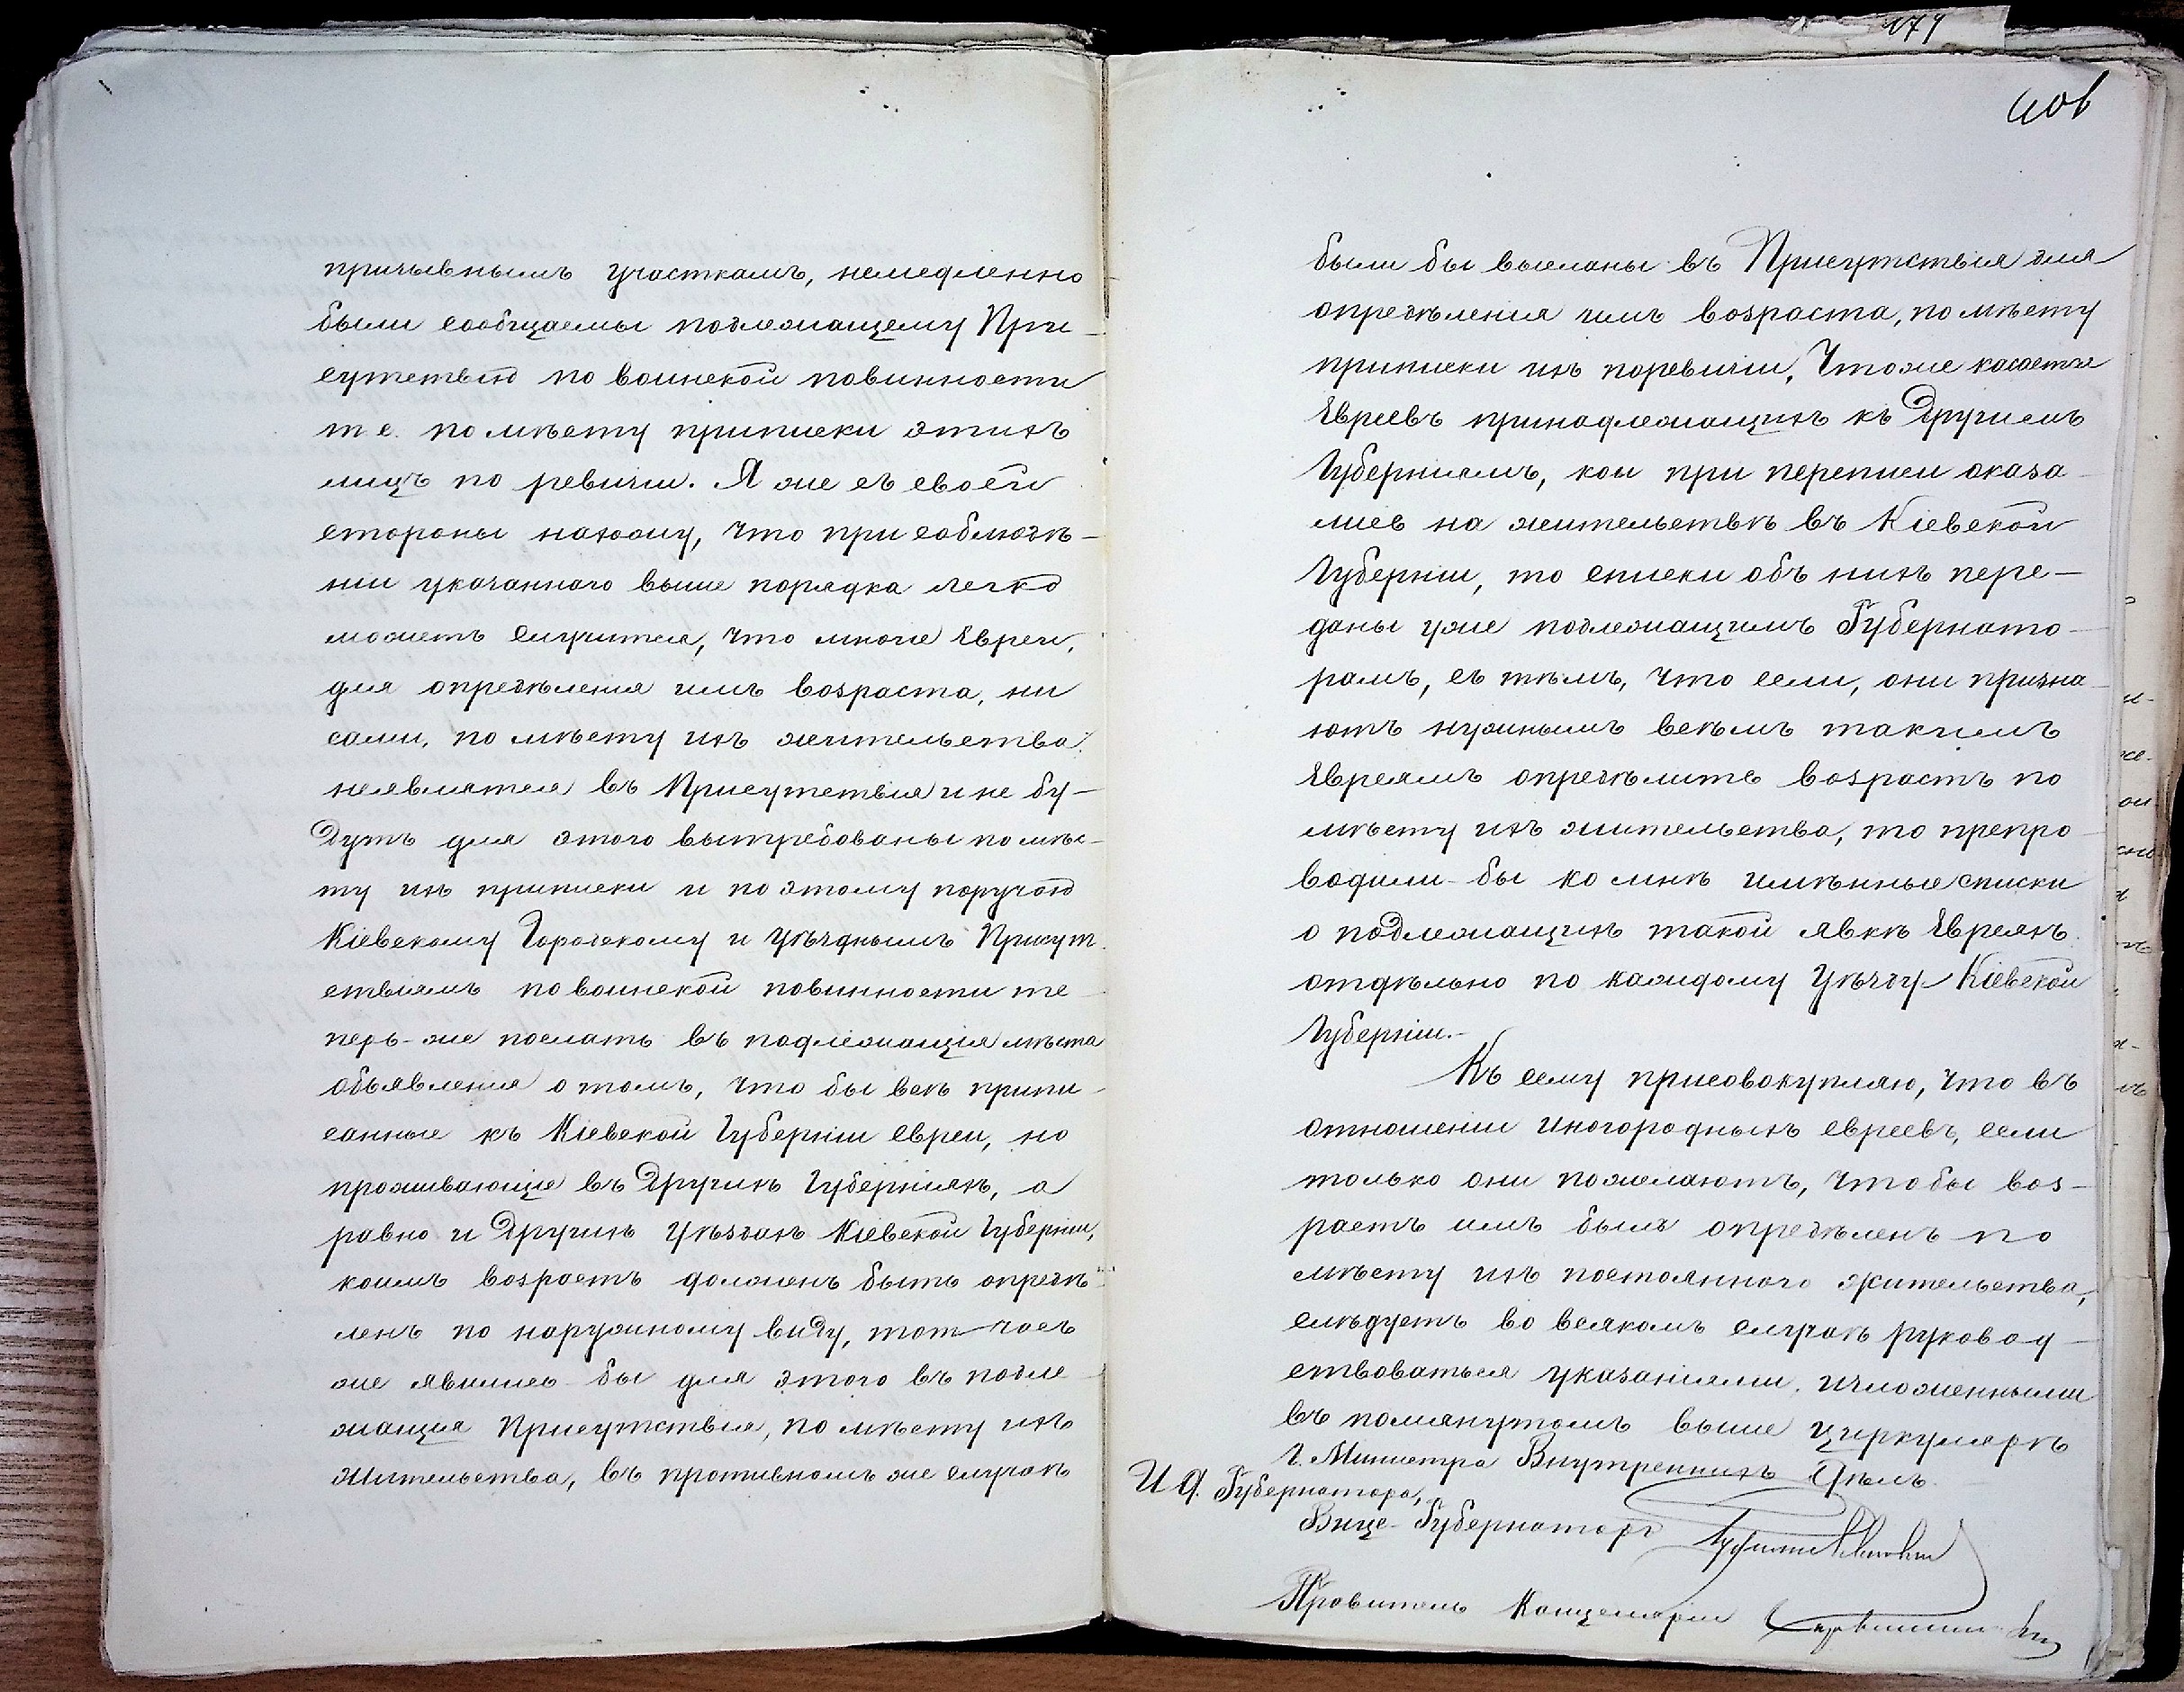 призывнымъ участкамъ, немедленно
были сообщаемы подлежащему При-
сутствію по воинской повинности
т.е. по мѣсту приписки этихъ
лицъ по ревизіи. Я же съ своей
стороны нахожу, что при соблюдѣ-
ніи указаннаго выше порядка легко
можетъ случится, что многіе Евреи,
для опредѣленія имъ возраста, ни
сами, по мѣсту ихъ жительства,
неявлятся въ Присутствія и не бу-
дутъ для этого вытребованы по мѣс-
ту ихъ приписки и поэтому поручаю
Кіевскому Городскому и Уѣзднымъ Присут-
ствіямъ по воинской повинности те-
перь-же послать въ подлежащія мѣста
объявленія о томъ, что бы всѣ припи-
санные къ Кіевской Губерніи евреи, но
проживающіе въ Другихъ Губерніяхъ, а
равно и Другихъ Уѣздахъ Кіевской Губерніи,
коимъ возрастъ долженъ быть опредѣ-
ленъ по наружному виду, тот-часъ
же явились-бы для этого въ подле-
жащія Присутствія, по мѣсту ихъ
Жительства, въ противномъ же случаѣ
174
401
были бы высланы въ Присутствія для
опредѣленія имъ возраста, по мѣсту
приписки ихъ поревизіи. Чтоже касается
Евреевъ принадлежащихъ къ Другимъ
Губерніямъ, кои при переписи оказа-
лись на жительствѣ въ Кіевской
Губерніи, то списки объ нихъ пере-
даны уже подлежащимъ Губернато-
рамъ, съ тѣмъ, что если, они призна-
ютъ нужнымъ всѣмъ такимъ
Евреямъ опредѣлить возрастъ по
мѣсту ихъ жительства, то препро-
водили-бы ко мнѣ имѣнные списки
о подлежащихъ такой явкѣ Евреяхъ
отдѣльно по каждому Уѣзду Кіевской
Губерніи.-
Къ сему присовокупляю, что въ
отношеніи иногородныхъ евреевъ, если
только они пожелаютъ, чтобы воз-
растъ имъ былъ опредѣленъ по
мѣсту ихъ постояннаго жительства,
слѣдуетъ во всякомъ случаѣ руковод-
ствоваться указаніями, изложенными
въ помянутомъ выше циркулярѣ
Г. Министра Внутреннихъ Дѣлъ.
И Д. Губернатора,
Вице-Губернаторъ
Правитель Канцеляріи